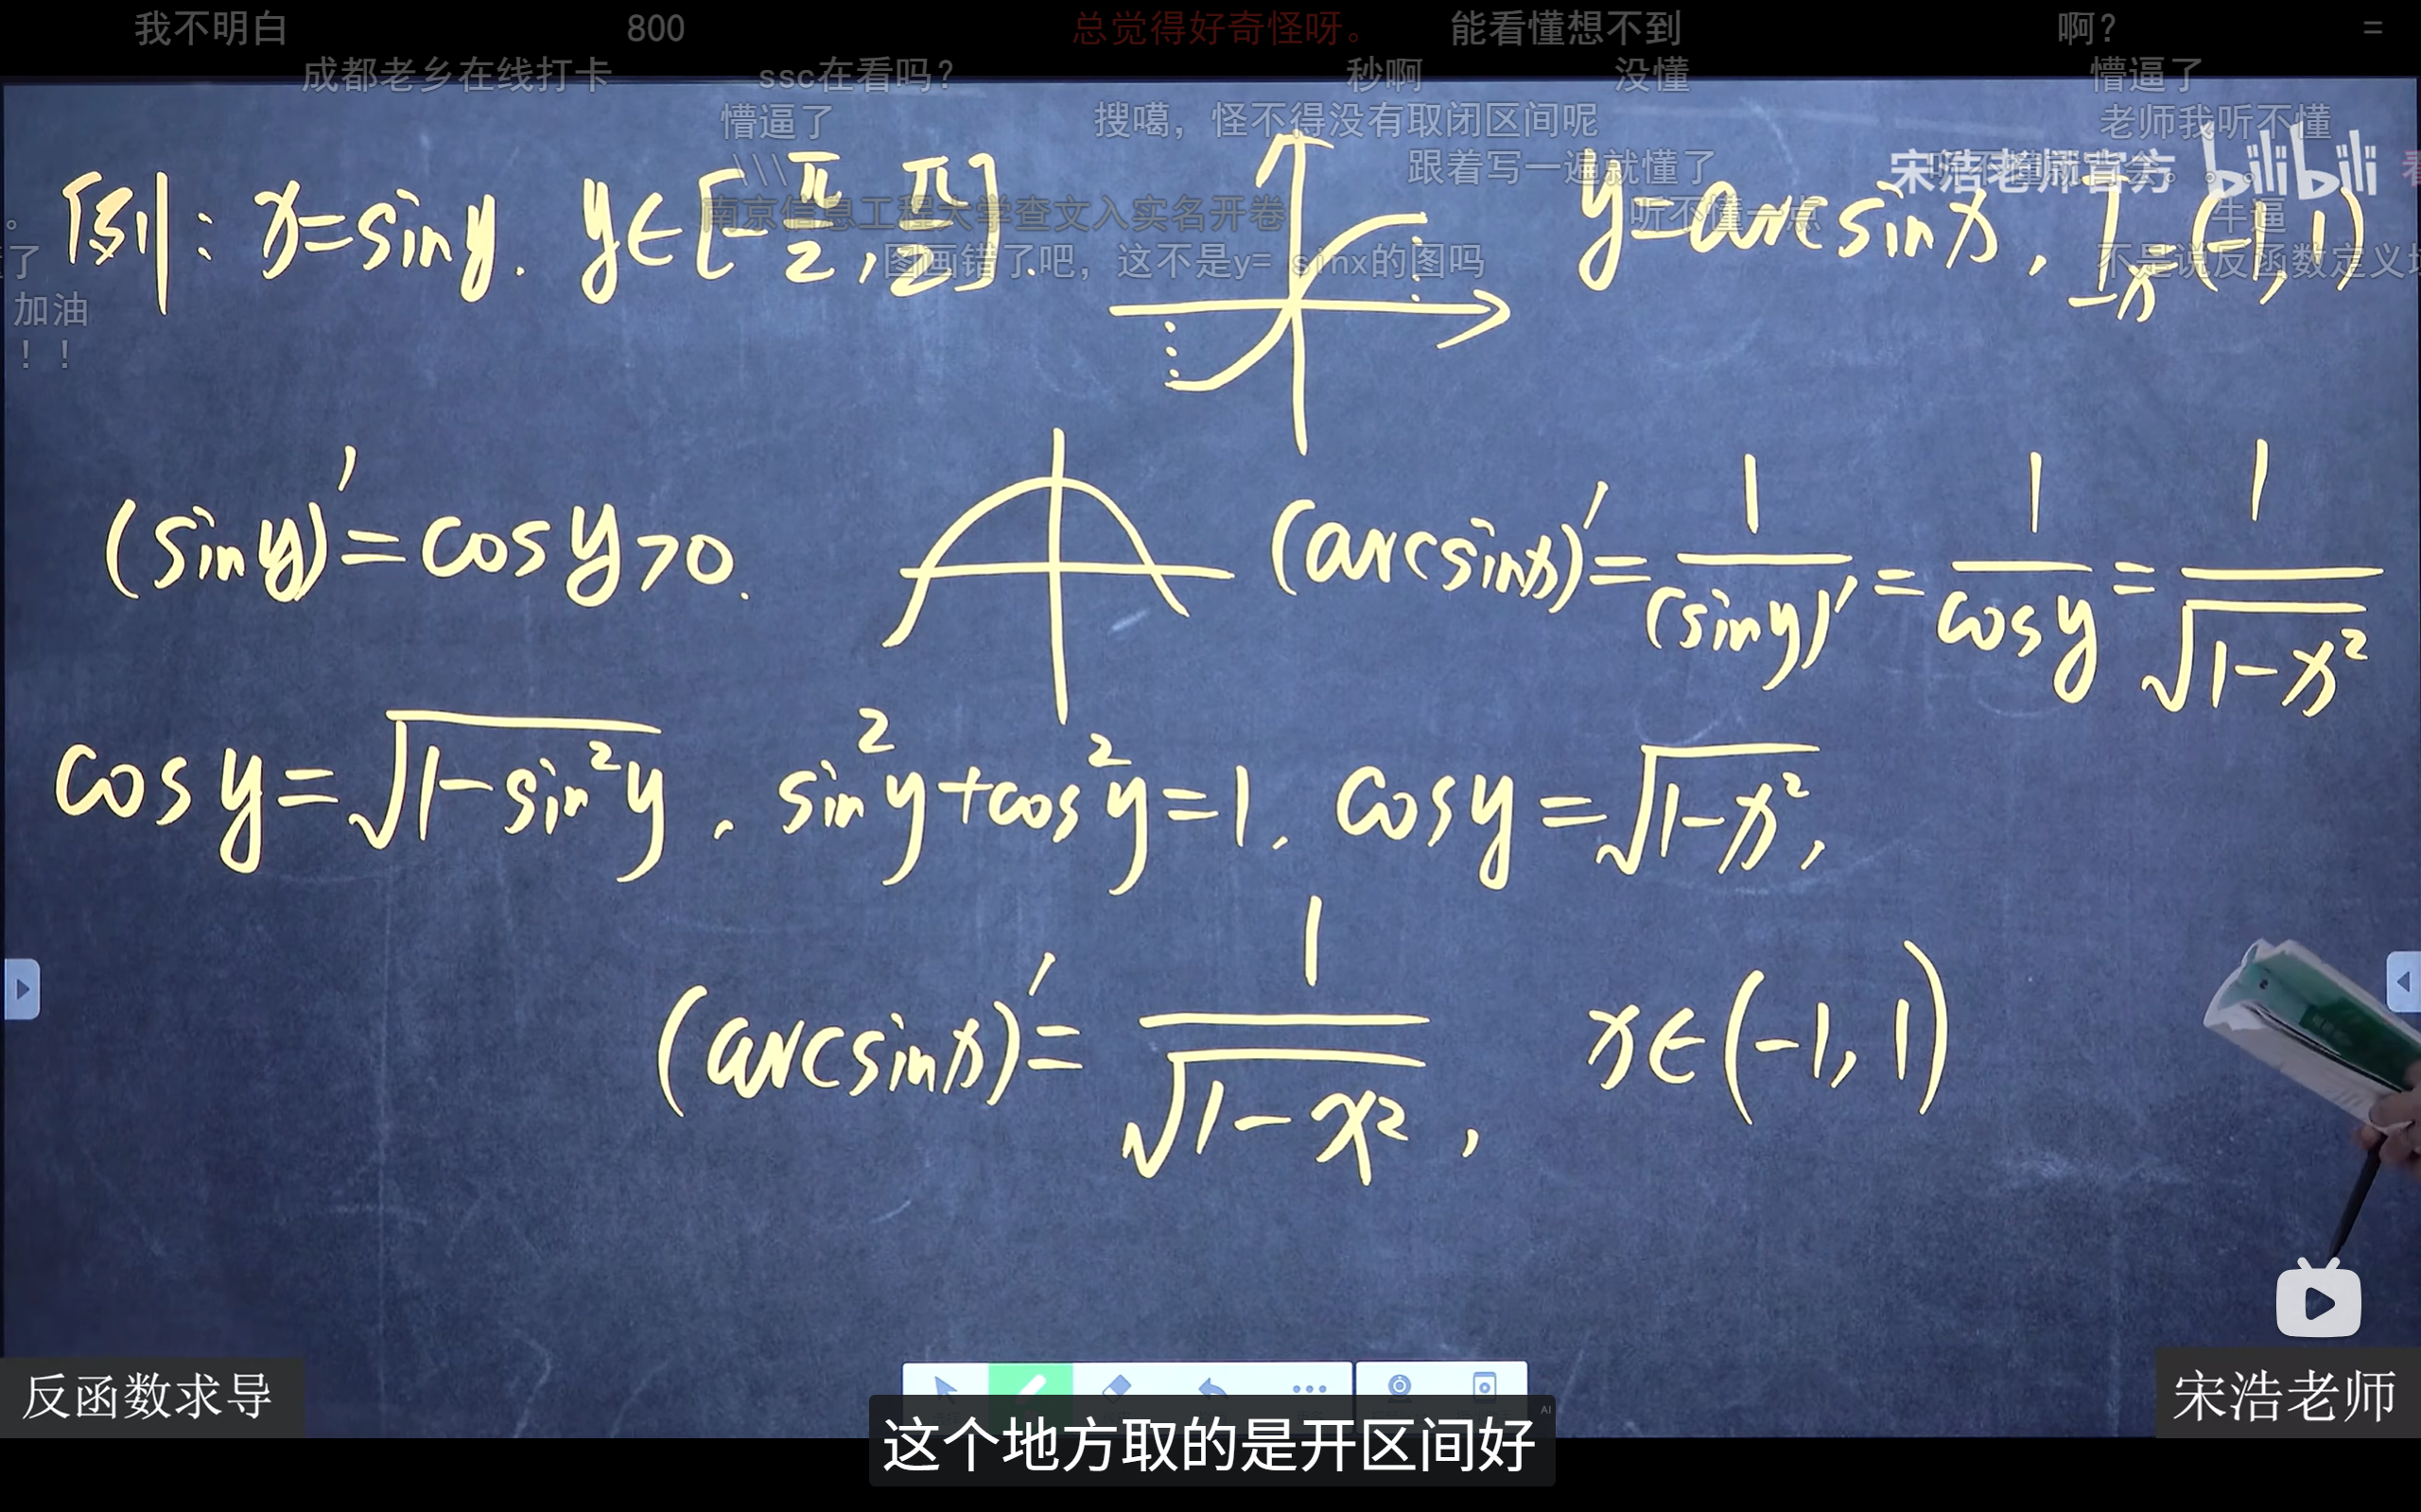 我不明白 800 总觉得好奇怪呀。 能看懂想不到 啊? =
成都老乡在线打卡 ssc在看吗? 秒啊 没懂 懵逼了
懵逼了 搜噶，怪不得没有取闭区间呢 老师我听不懂
\\\ 跟着写一遍就懂了 宋浩老师官方 bilibili 看
。 南京信息工程大学查文入实名开卷 听不懂一点 牛逼
了 图画错了吧，这不是y= sinx的图吗 不是说反函数定义域
加油
！！
例: x=siny. y∈[-π/2, π/2]. y=arcsinx, Iₓ=(-1,1)
(siny)′=cosy>0. (arcsinx)′=1/(siny)′=1/cosy=1/√(1-x²)
cosy=√(1-sin²y). sin²y+cos²y=1. cosy=√(1-x²),
(arcsinx)′=1/√(1-x²), x∈(-1,1)
反函数求导
宋浩老师
AI
这个地方取的是开区间好